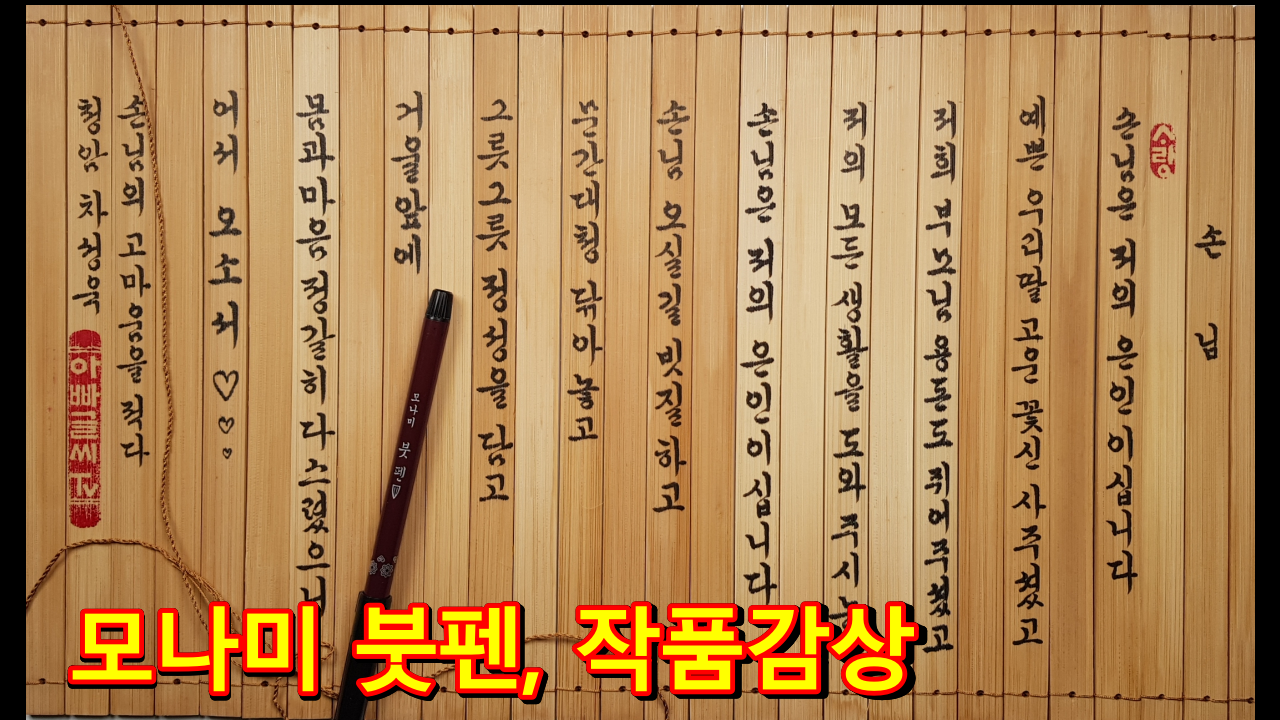 손 님
사랑
손님은 저의 은인 이십니다
예쁜 우리딸 고운 꽃신 사주셨고
저희 부모님 용돈도 쥐어주셨고
저의 모든 생활을 도와 주시는
손님은 저의 은인이십니다
손님 오실길 빗질하고
문간대청 닦아 놓고
그릇그릇 정성을 담고
거울앞에
몸과마음정갈히 다스렸으니
어서 오소서♡♡♡
손님의 고마움을 적다
청암 차성욱
아빠글씨
모나미 붓펜
모나미 붓펜, 작품감상